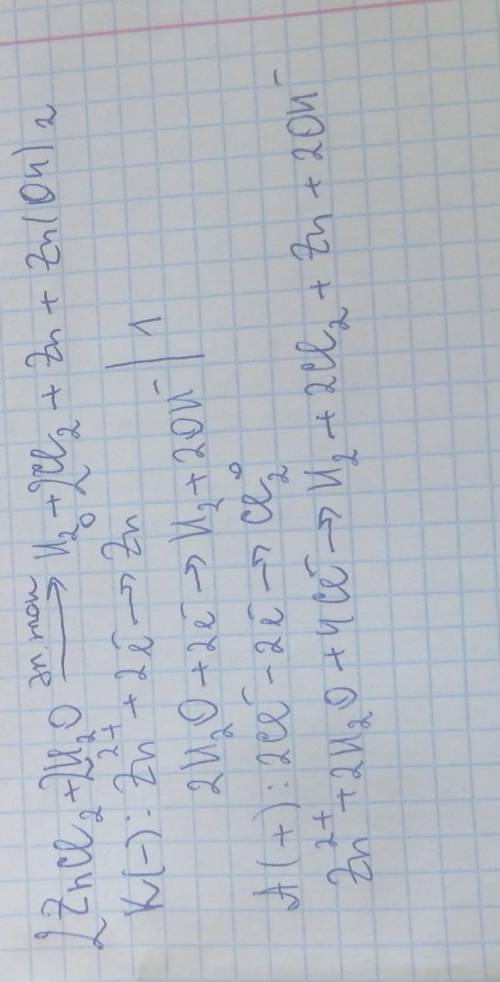 2ZnCl₂ + 2H₂O —эл. ток→ H₂ + 2Cl₂ + Zn + Zn(OH)₂
K(-): Zn²⁺ + 2ē → Zn⁰ | 1
2H₂O + 2ē → H₂ + 2OH⁻
A(+): 2Cl⁻ - 2ē → Cl₂⁰
Zn²⁺ + 2H₂O + 4Cl⁻ → H₂ + 2Cl₂ + Zn + 2OH⁻